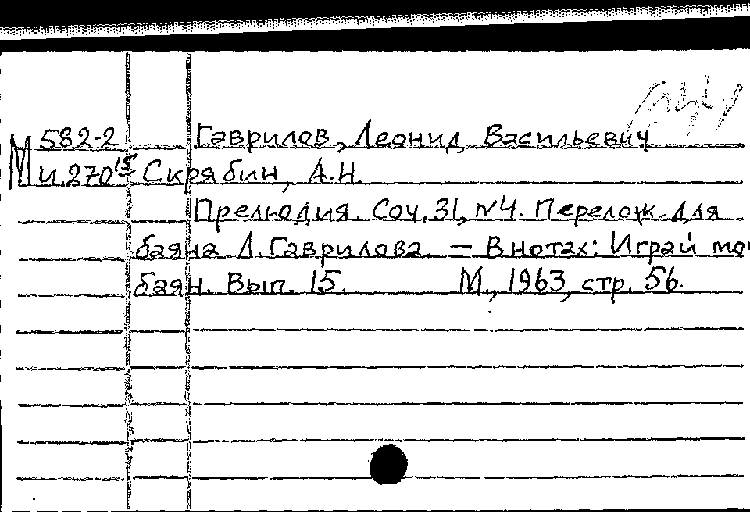 М 582-2 Гаврилов, Леонид Васильевич
И 270 15 Скрябин, А.Н.
Прелюдия. Соч. 31, №4. Перелож. для
баяна Л. Гаврилова. — В нотах: Играй мо
баян. Вып. 15. М., 1963, стр. 56.